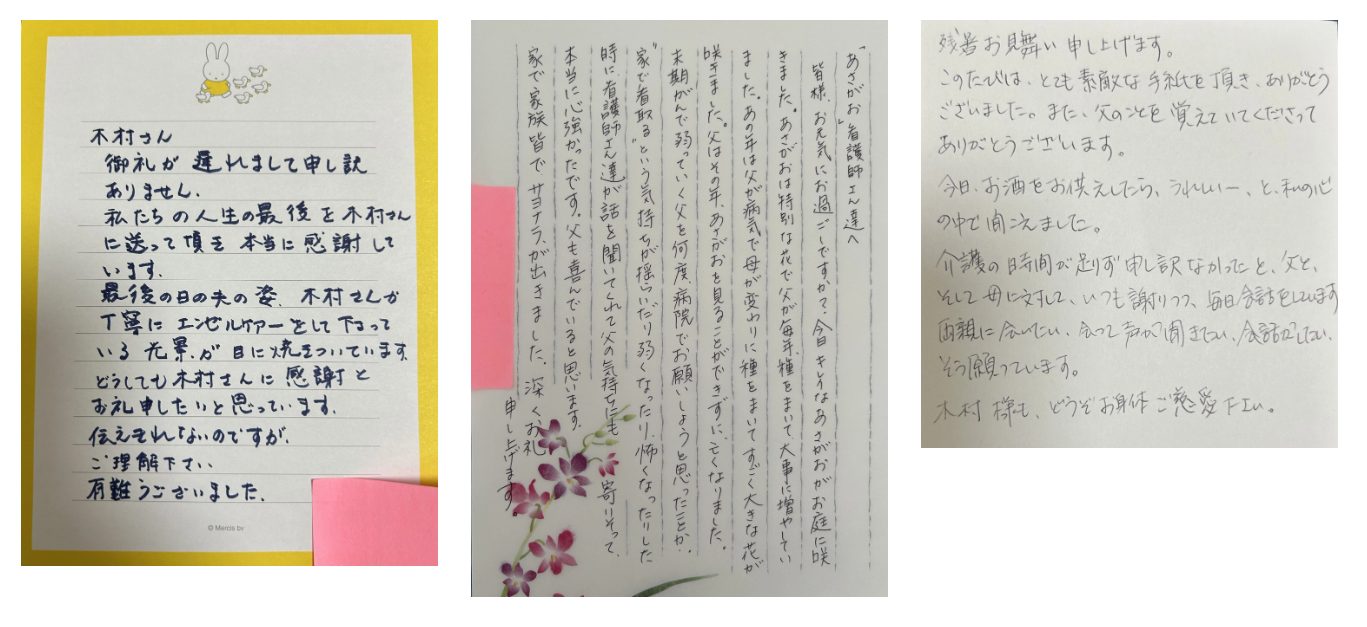 木村さん
御礼が遅れまして申し訳
ありません。
私たちの人生の最後を木村さん
に送って頂き本当に感謝して
います。
最後の日の夫の姿、木村さんが
丁寧にエンゼルケアーをして下さって
いる光景が目に焼きついています。
どうしても木村さんに感謝と
お礼申したいと思っています。
伝えきれないのですが、
ご理解下さい
有難うございました。
© Mercis bv
「あさがお」看護師さん達へ
皆様、お元気にお過ごしですか?今日キレイなあさがおがお庭に咲
きました。あさがおは特別な花で父が毎年、種をまいて大事に増やしてい
ました。あの年は父が病気で母が変わりに種をまいてすごく大きな花が
咲きました。父はその年、あさがおを見ることができずに亡くなりました。
末期がんで弱っていく父を何度、病院でお願いしようと思ったことか。
"家で看取る"という気持ちが揺らいだり弱くなったり、怖くなったりした
時に、看護師さん達が話を聞いてくれて父の気持ちにも寄りそって、
本当に心強かったです。父も喜んでいると思います。
家で家族皆でサヨナラが出きました。深くお礼
申し上げます。
残暑お見舞い申し上げます。
このたびは、とても素敵な手紙を頂き、ありがとう
ございました。また、父のことを覚えていてくださって
ありがとうございます。
今日、お酒をお供えしたら、うれしいー、と、私の心
の中で聞こえました。
介護の時間が足りず申し訳なかったと、父と、
そして母に対して、いつも謝りつつ、毎日会話をしています
両親に会いたい、会って声が聞きたい、会話がしたい、
そう願っています。
木村様も、どうぞお身体ご慈愛下さい。